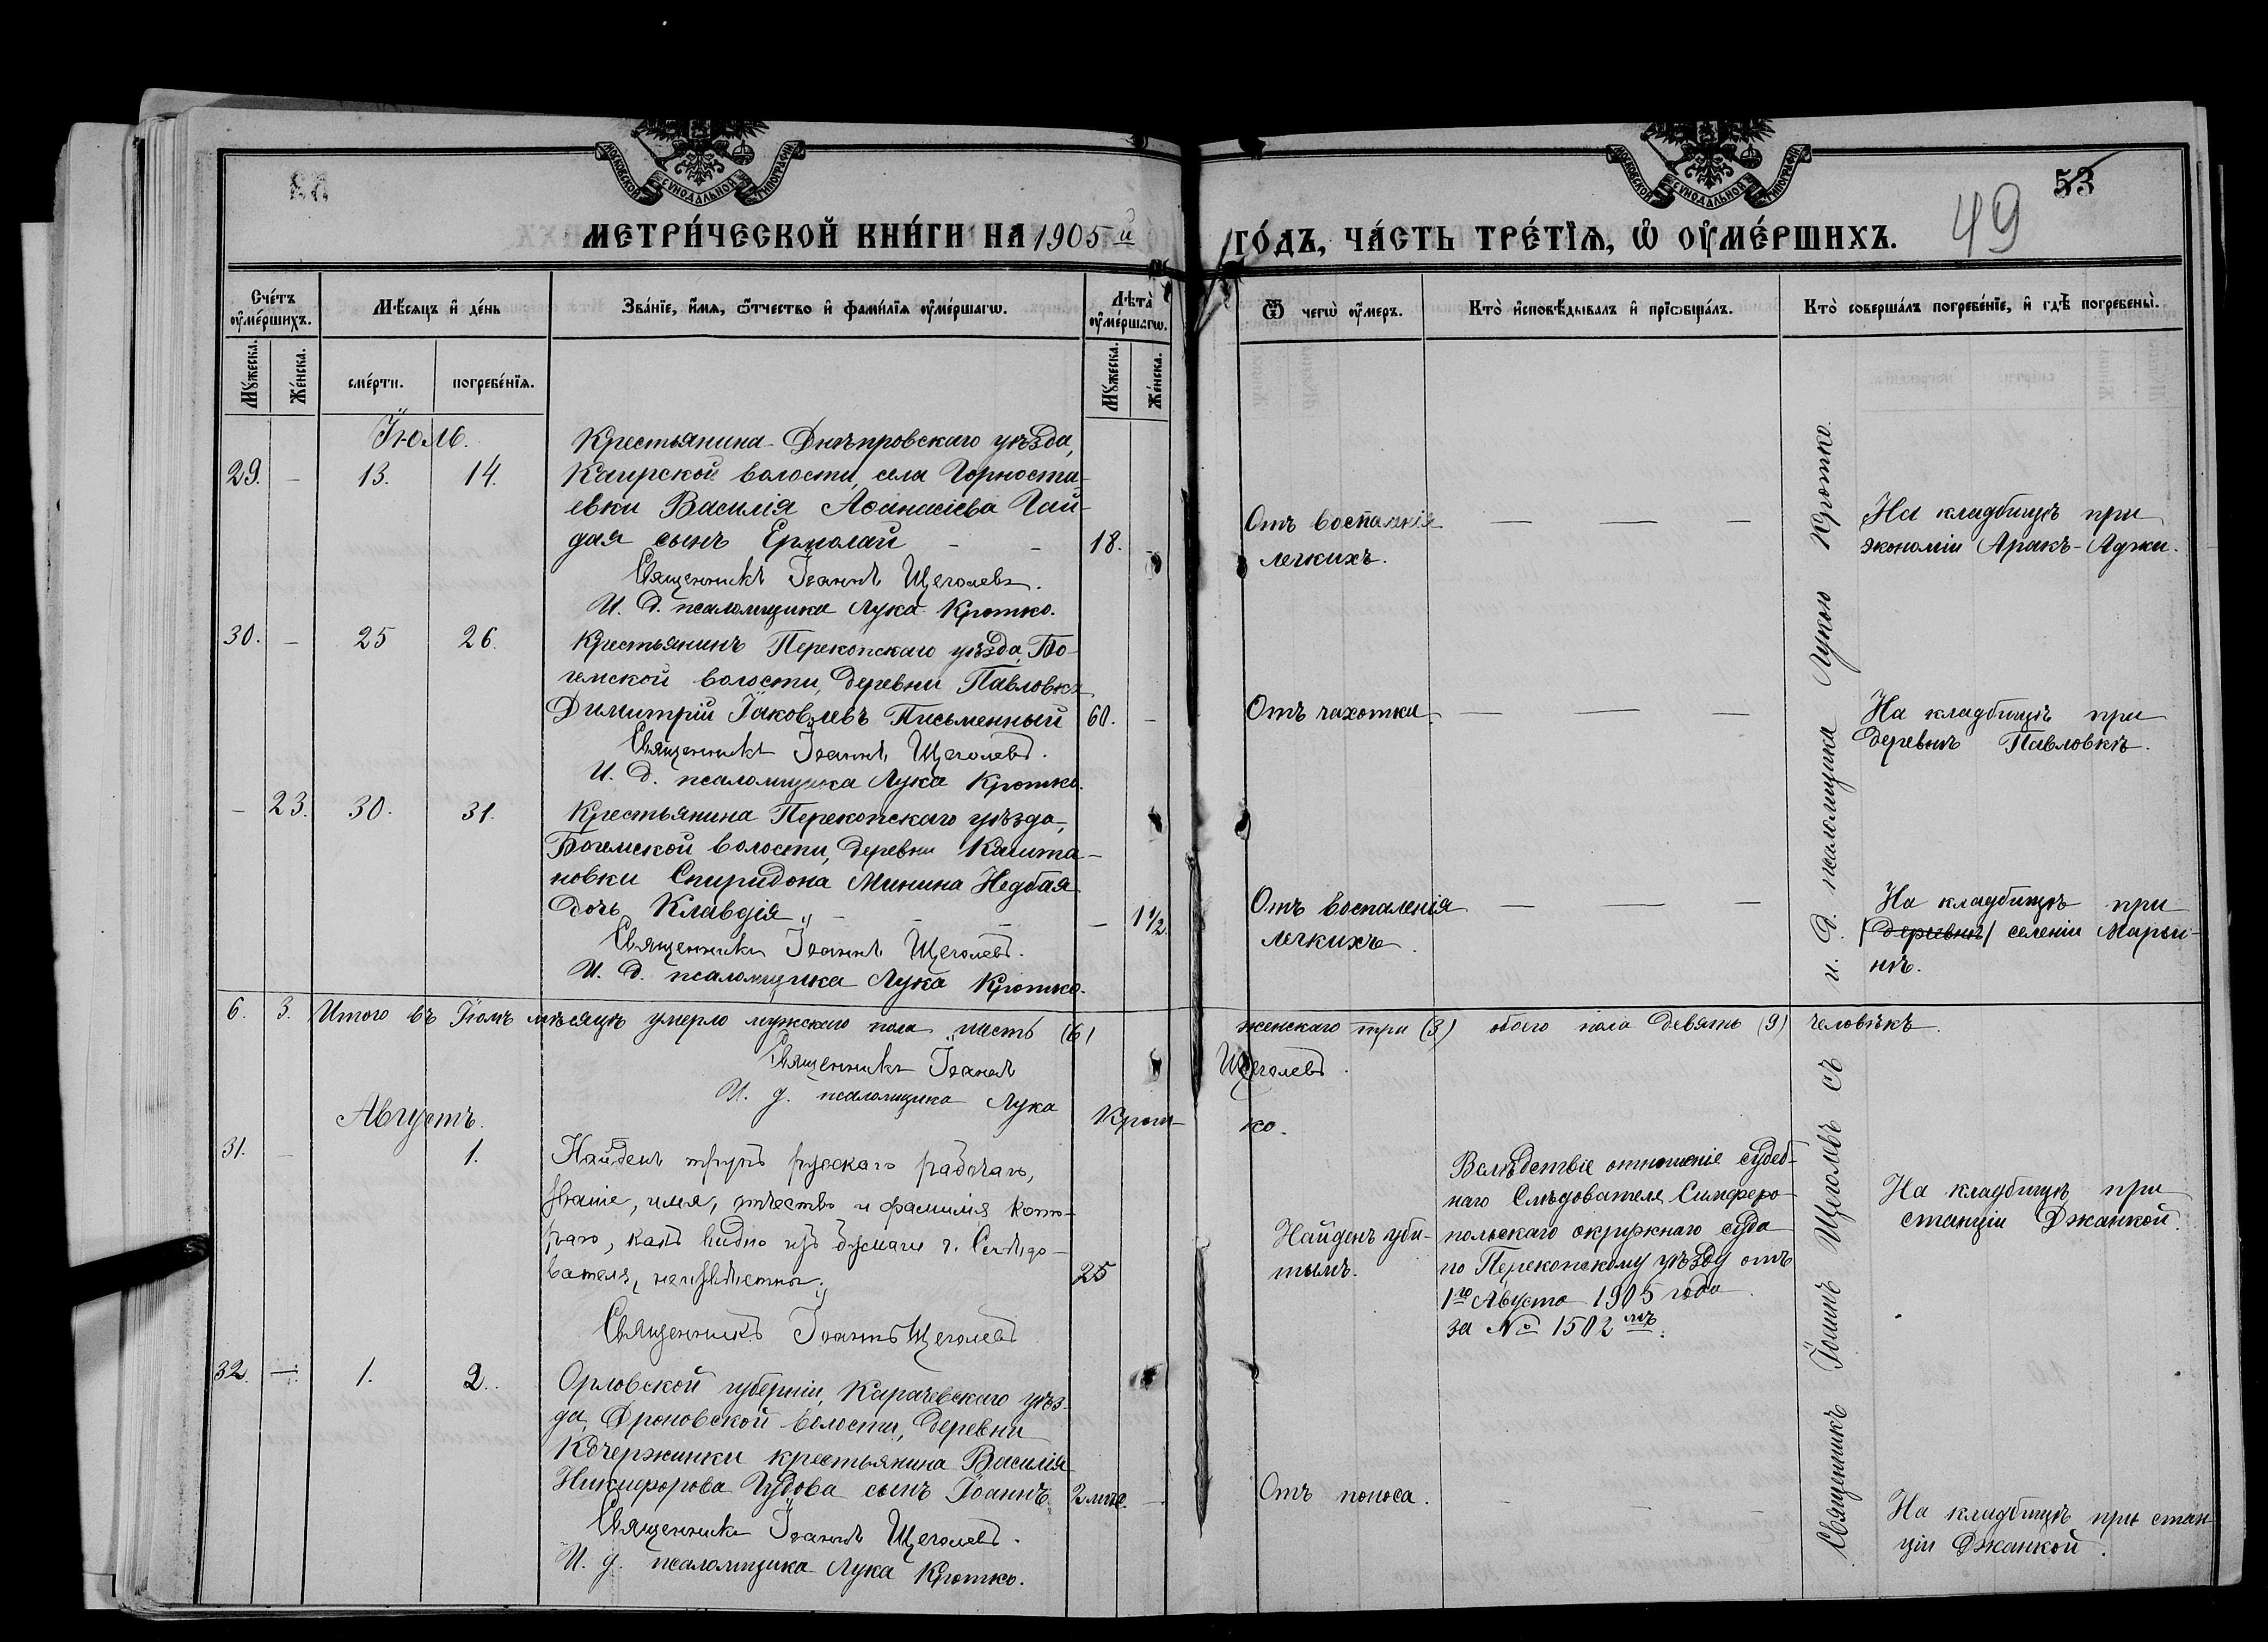 МОСКОВСКОЙ СѴНОДАЛЬНОЙ ТИПОГРАФІИ
МОСКОВСКОЙ СѴНОДАЛЬНОЙ ТИПОГРАФІИ
53
49
МЕТРИ́ЧЕСКОЙ КНИ́ГИ НА 1905 й
ГО́ДЪ, ЧА́СТЬ ТРЕ́ТІѦ, Ѡ ОУ҆МЕ́РШИХЪ.
Сче́тъ оу҆ме́ршихъ.
Мѣ́сяцъ и҆ де́нь
Зва́нїе, и҆́мѧ, ѻ҆́тчество и҆ фами́лїѧ оу҆ме́ршагѡ.
Лѣта̀ оу҆ме́ршагѡ.
Ѿ чегѡ̀ оу҆́меръ.
Кто̀ и҆сповѣ́дывалъ и҆ прїѡбща́лъ.
Кто̀ соверша́лъ погребе́нїе, и҆ гдѣ̀ погребены̀.
Мꙋ́жеска.
Же́нска.
сме́рти.
погребе́нїѧ.
Мꙋ́жеска.
Же́нска.
Іюль.
29. - 13. 14.
Крестьянина Днѣпровскаго уѣзда,
Каирской волости, села Горноста-
евки Василія Аѳанасіева Гай-
дая сынъ Ермолай - -
18. -
Отъ воспаленія
легкихъ.
На кладбищѣ при
экономіи Аракъ-Аджи.
Священникъ Іоаннъ Щеголевъ.
И. д. псаломщика Лука Кротко.
30. - 25 26.
Крестьянинъ Перекопскаго уѣзда, Бо-
гемской волости, деревни Павловки
Димитрій Іаковлевъ Письменный
60. -
Отъ чахотки
На кладбищѣ при
деревнѣ Павловкѣ.
Священникъ Іоаннъ Щеголевъ.
И. д. псаломщика Лука Кротко.
- 23. 30. 31.
Крестьянина Перекопскаго уѣзда,
Богемской волости, деревни Кашта-
новки Спиридона Минина Недбая
дочь Клавдія - -
- 1 1/2
Отъ воспаленія
легкихъ.
На кладбищѣ при
(деревнѣ) селеніи Марьи-
нѣ.
Священникъ Іоаннъ Щеголевъ.
И. д. псаломщика Лука Кротко.
6. 3. Итого въ Іюлѣ мѣсяцѣ умерло мужскаго пола шесть (6) женскаго три (3) обоего пола девять (9) человѣкъ.
Священникъ Іоаннъ Щеголевъ.
И. д. псаломщика Лука Крот- ко.
Августъ.
31. - 1.
Найденъ трупъ русскаго рабочаго,
званіе, имя, отчество и фамилія кото-
раго, какъ видно изъ бумаги г. Слѣдо-
вателя, неизвѣстны.
25
Найденъ уби-
тымъ.
Вслѣдствіе отношенія судеб-
наго Слѣдователя Симферо-
польскаго окружнаго суда
по Перекопскому уѣзду отъ
1го Августа 1905 года
за № 1502 мъ.
На кладбищѣ при
станціи Джанкой.
Священникъ Іоаннъ Щеголевъ
32. - 1. 2.
Орловской губерніи, Карачевскаго уѣз-
да, Дроновской волости, деревни
Кочержинки крестьянина Василія
Никифорова Гудова сынъ Іоаннъ.
2 мѣс. -
Отъ поноса.
На кладбищѣ при стан-
ціи Джанкой.
Священникъ Іоаннъ Щеголевъ.
И. д. псаломщика Лука Кротко.
Священникъ Іоаннъ Щеголевъ съ и. д. псаломщика Лукою Кротко.